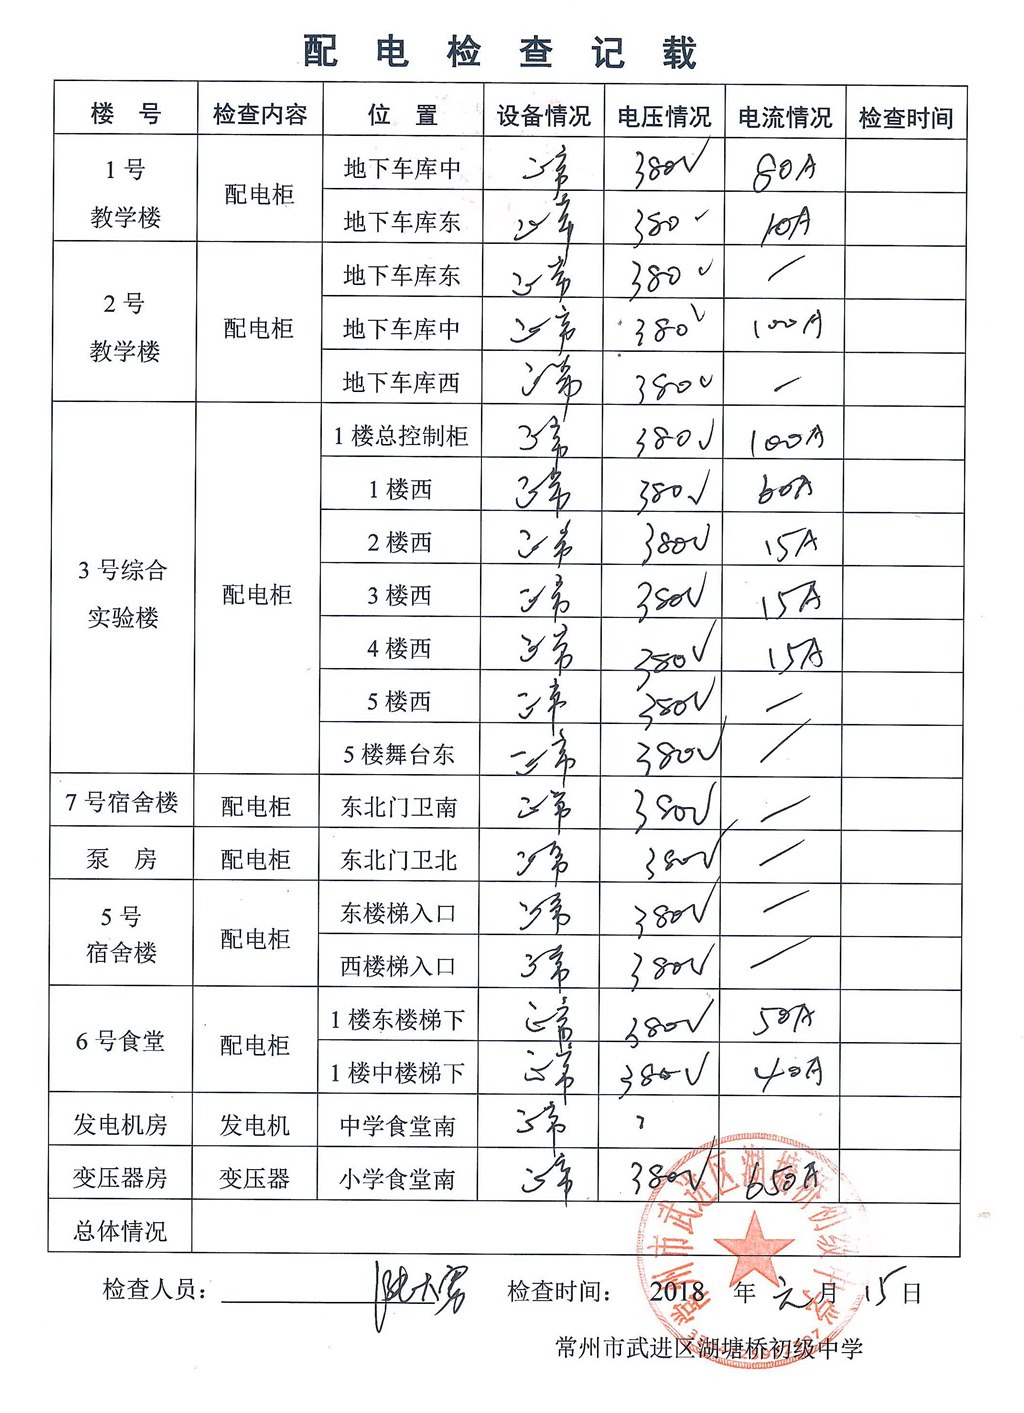 配 电 检 查 记 载
楼 号 检查内容 位 置 设备情况 电压情况 电流情况 检查时间
1号
教学楼
配电柜
地下车库中 正常 380V 80A
地下车库东 正常 380V 10A
2号
教学楼
配电柜
地下车库东 正常 380V —
地下车库中 正常 380V 100A
地下车库西 正常 380V —
3号综合
实验楼
配电柜
1楼总控制柜 正常 380V 100A
1楼西 正常 380V 60A
2楼西 正常 380V 15A
3楼西 正常 380V 15A
4楼西 正常 380V 15A
5楼西 正常 380V —
5楼舞台东 正常 380V —
7号宿舍楼 配电柜 东北门卫南 正常 380V —
泵 房 配电柜 东北门卫北 正常 380V —
5号
宿舍楼
配电柜
东楼梯入口 正常 380V —
西楼梯入口 正常 380V —
6号食堂 配电柜
1楼东楼梯下 正常 380V 50A
1楼中楼梯下 正常 380V 40A
发电机房 发电机 中学食堂南 正常
变压器房 变压器 小学食堂南 正常 380V 650A
总体情况
检查人员： 检查时间： 2018 年 元 月 15 日
常州市武进区湖塘桥初级中学
常州市武进区湖塘桥初级中学